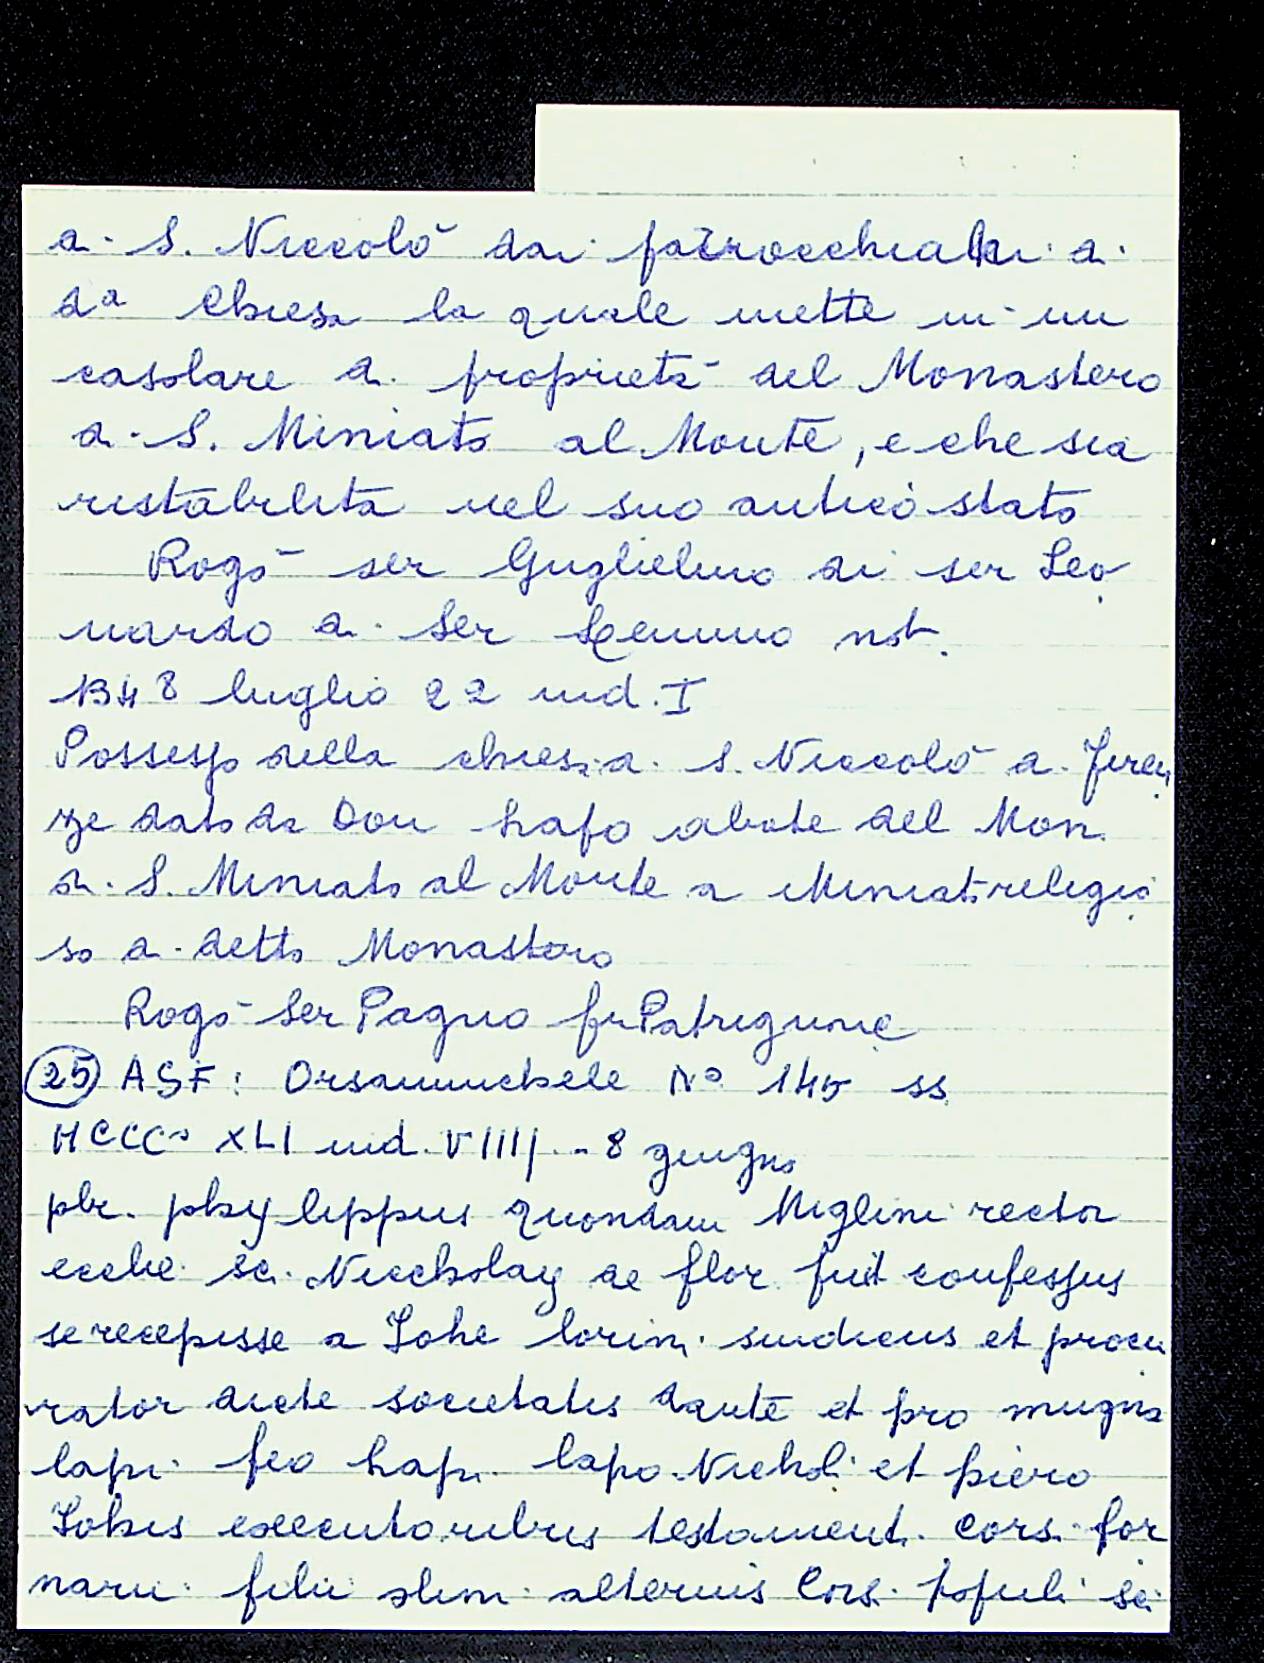 di S. Niccolò dai parrocchiali di
da Chiesa la quale mette in un
casolare di proprietà del Monastero
di S. Miniato al Monte, e che sia
ristabilita nel suo antico stato
Rogò ser Guglielmo di ser Leo
nardo di Ser not.
1348 luglio 22 ind. I
Possesso della chiesa di S. Niccolò di Firen
ze dato da Don Lapo abate del Mon.
di S. Miniato al Monte a Miniato religio
so di detto Monastero
Rogò Ser Pagno fu Patrignone
25 ASF: Orsanmichele No 145 ss
MCCCo XLI ind. VIIII - 8 giugno
pbr. phylippus quondam Miglini rector
ecclie sci. Niccholay de flor fuit confessus
se recepisse a Johe lorini sindicus et procu
rator dicte societatis dante et pro
lapi feo Lapi lapo Nichol. et piero
Johis executoribus testament. Cors. for
narii filii alterius Cors. populi sci